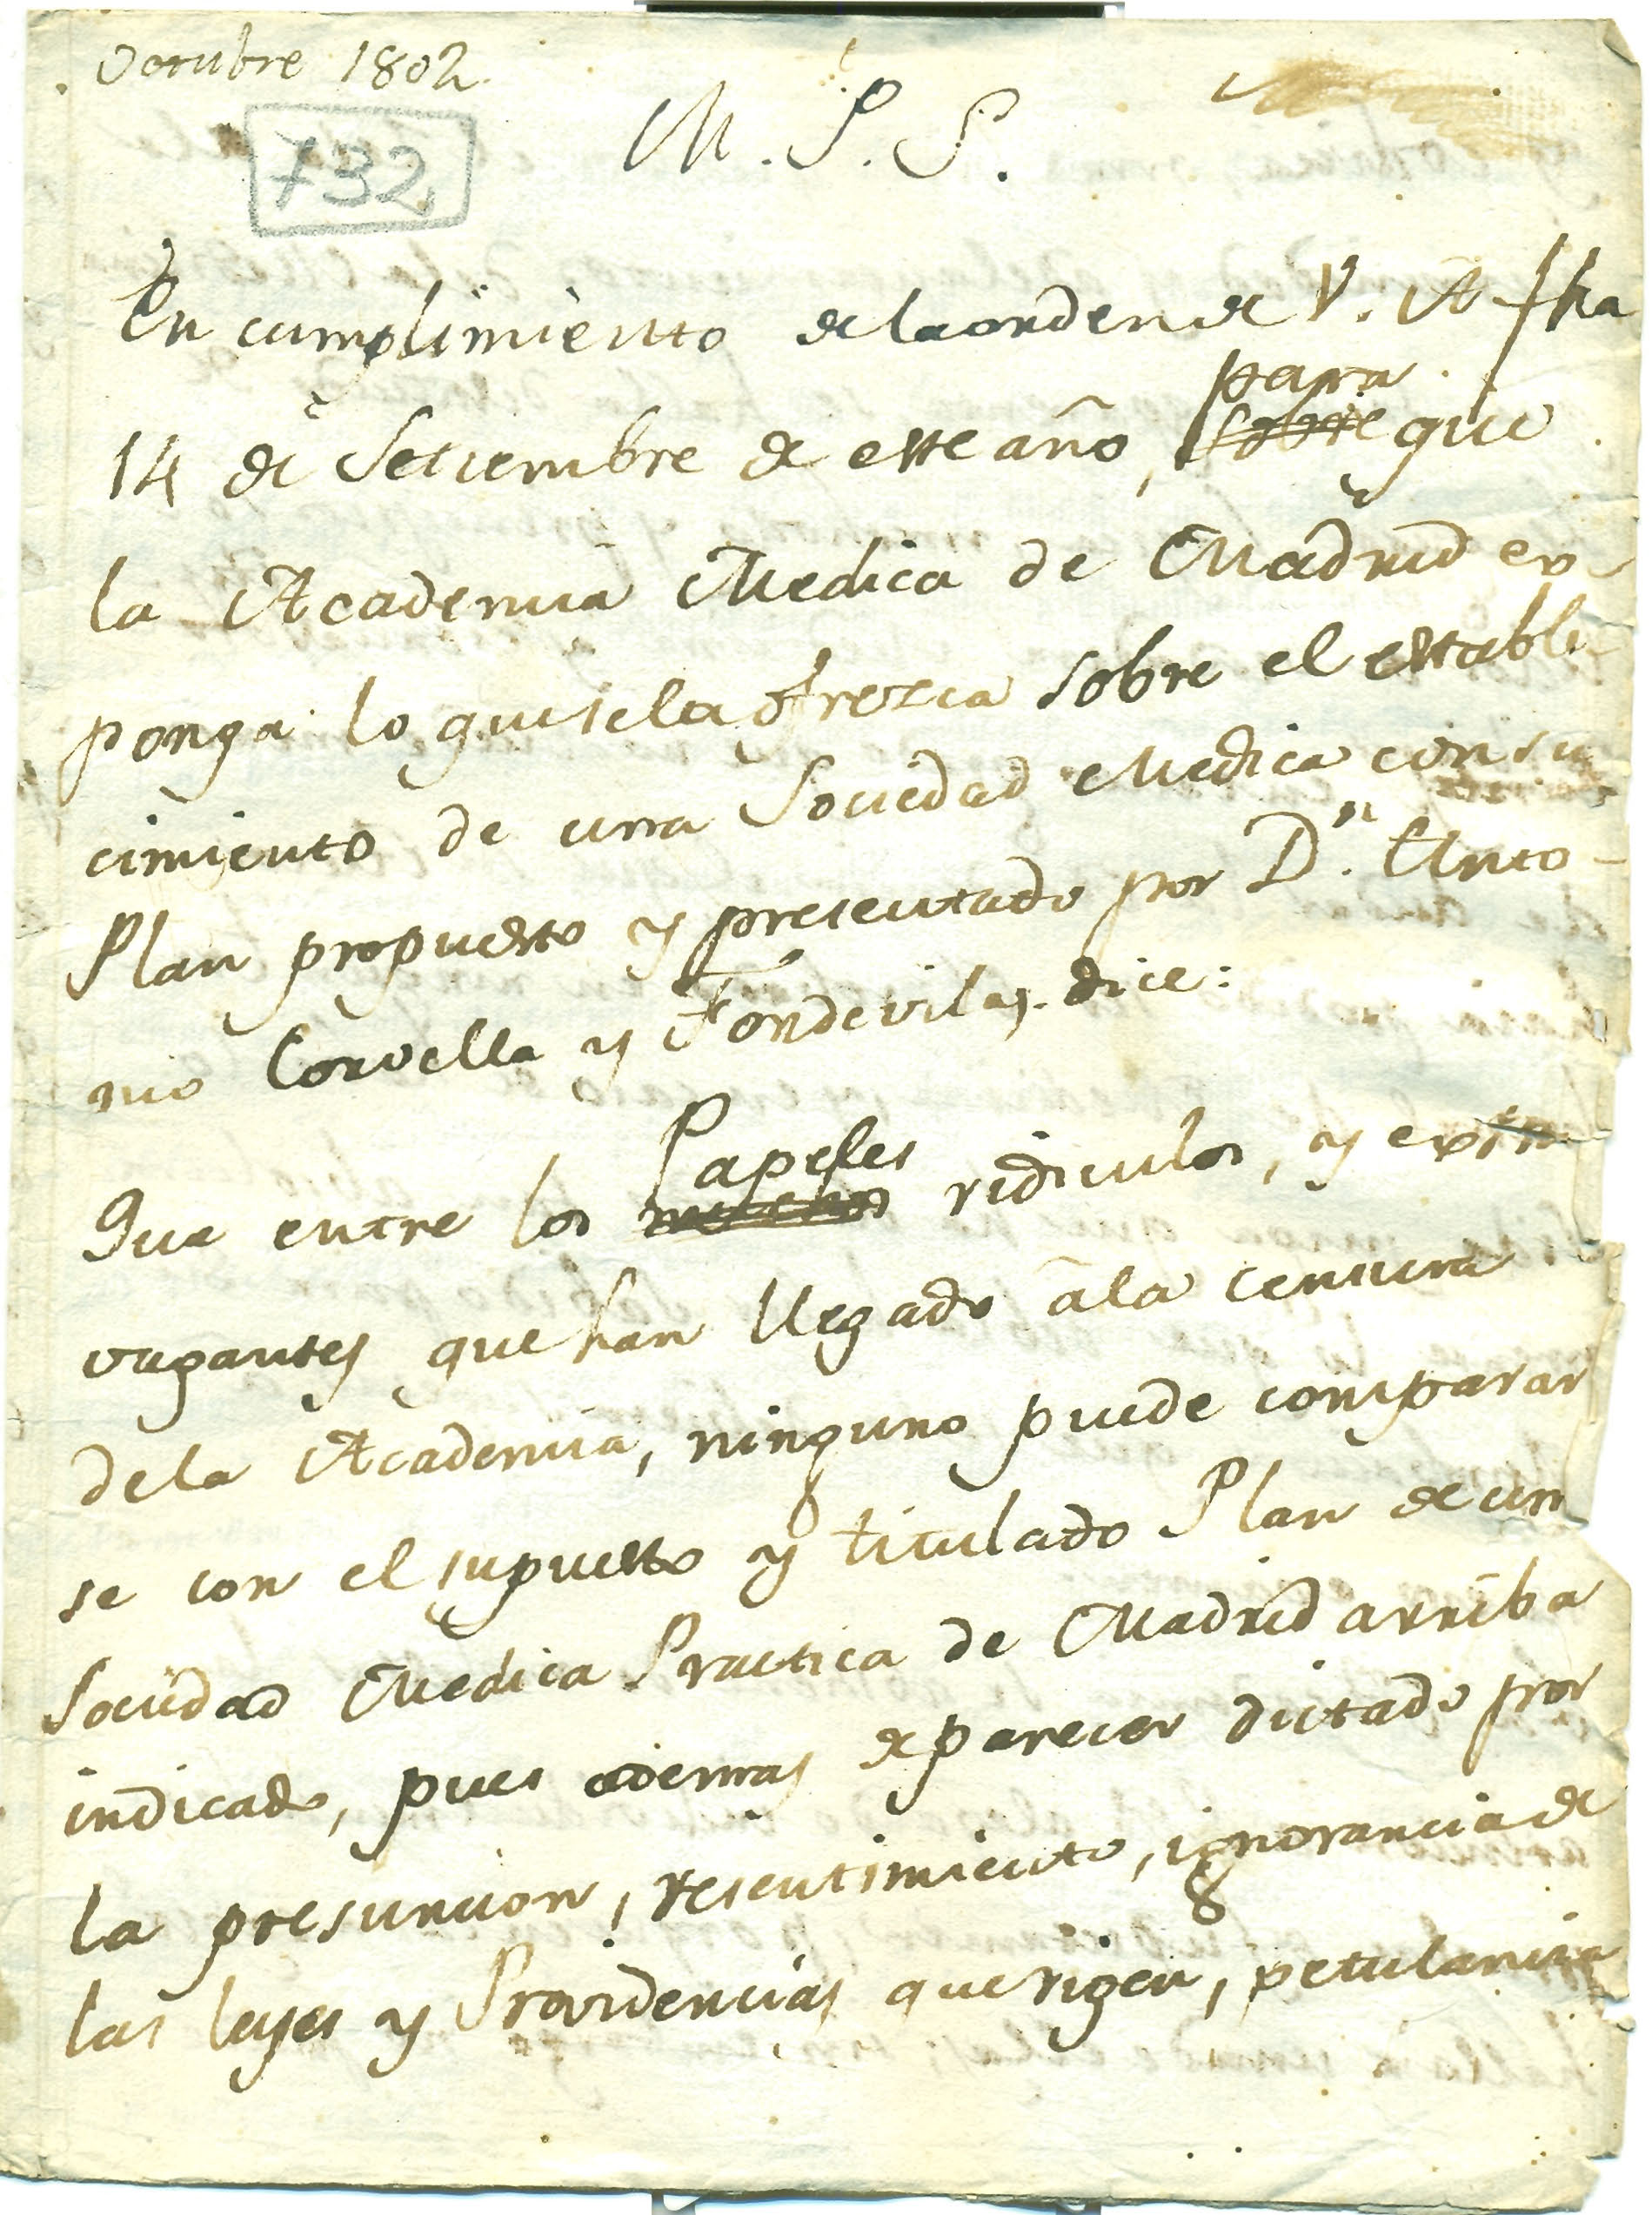 Octubre 1802
732
M. P. S.
En cumplimiento de la orden de V. A. fha
para
14 de Setiembre de este año, sobre que
la Academia Medica de Madrid ex
ponga lo que se la ofrezca sobre el estable
cimiento de una Sociedad Medica con su
Plan propuesto y presentado por Dn. Anto-
nio Corvella y Fondevilas. dice:
Papeles
Que entre los muchos ridiculos, y extra
vagantes que han llegado ā la censura
de la Academia, ninguno puede comparar
se con el supuesto y titulado Plan de un
Sociedad Medica Practica de Madrid arriba
indicado, pues ademas de parecer dictado por
la presuncion, resentimiento, ignorancia de
las leyes y Providencias que rigen, petulancia